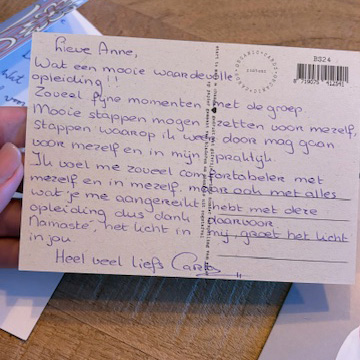 Lieve Anne,
Wat een mooie waardevolle
opleiding!!
Zoveel fijne momenten met de groep
Mooie stappen mogen zetten voor mezelf,
stappen waarop ik weer door mag gaan
voor mezelf en in mijn praktijk.
Ik voel me zoveel comfortabeler met
mezelf en in mezelf, maar ook met alles
wat je me aangereikt hebt met deze
opleiding dus dank daarvoor
Namasté, het licht in mij groet het licht
in jou
Heel veel liefs
BS24
8 719075 412341